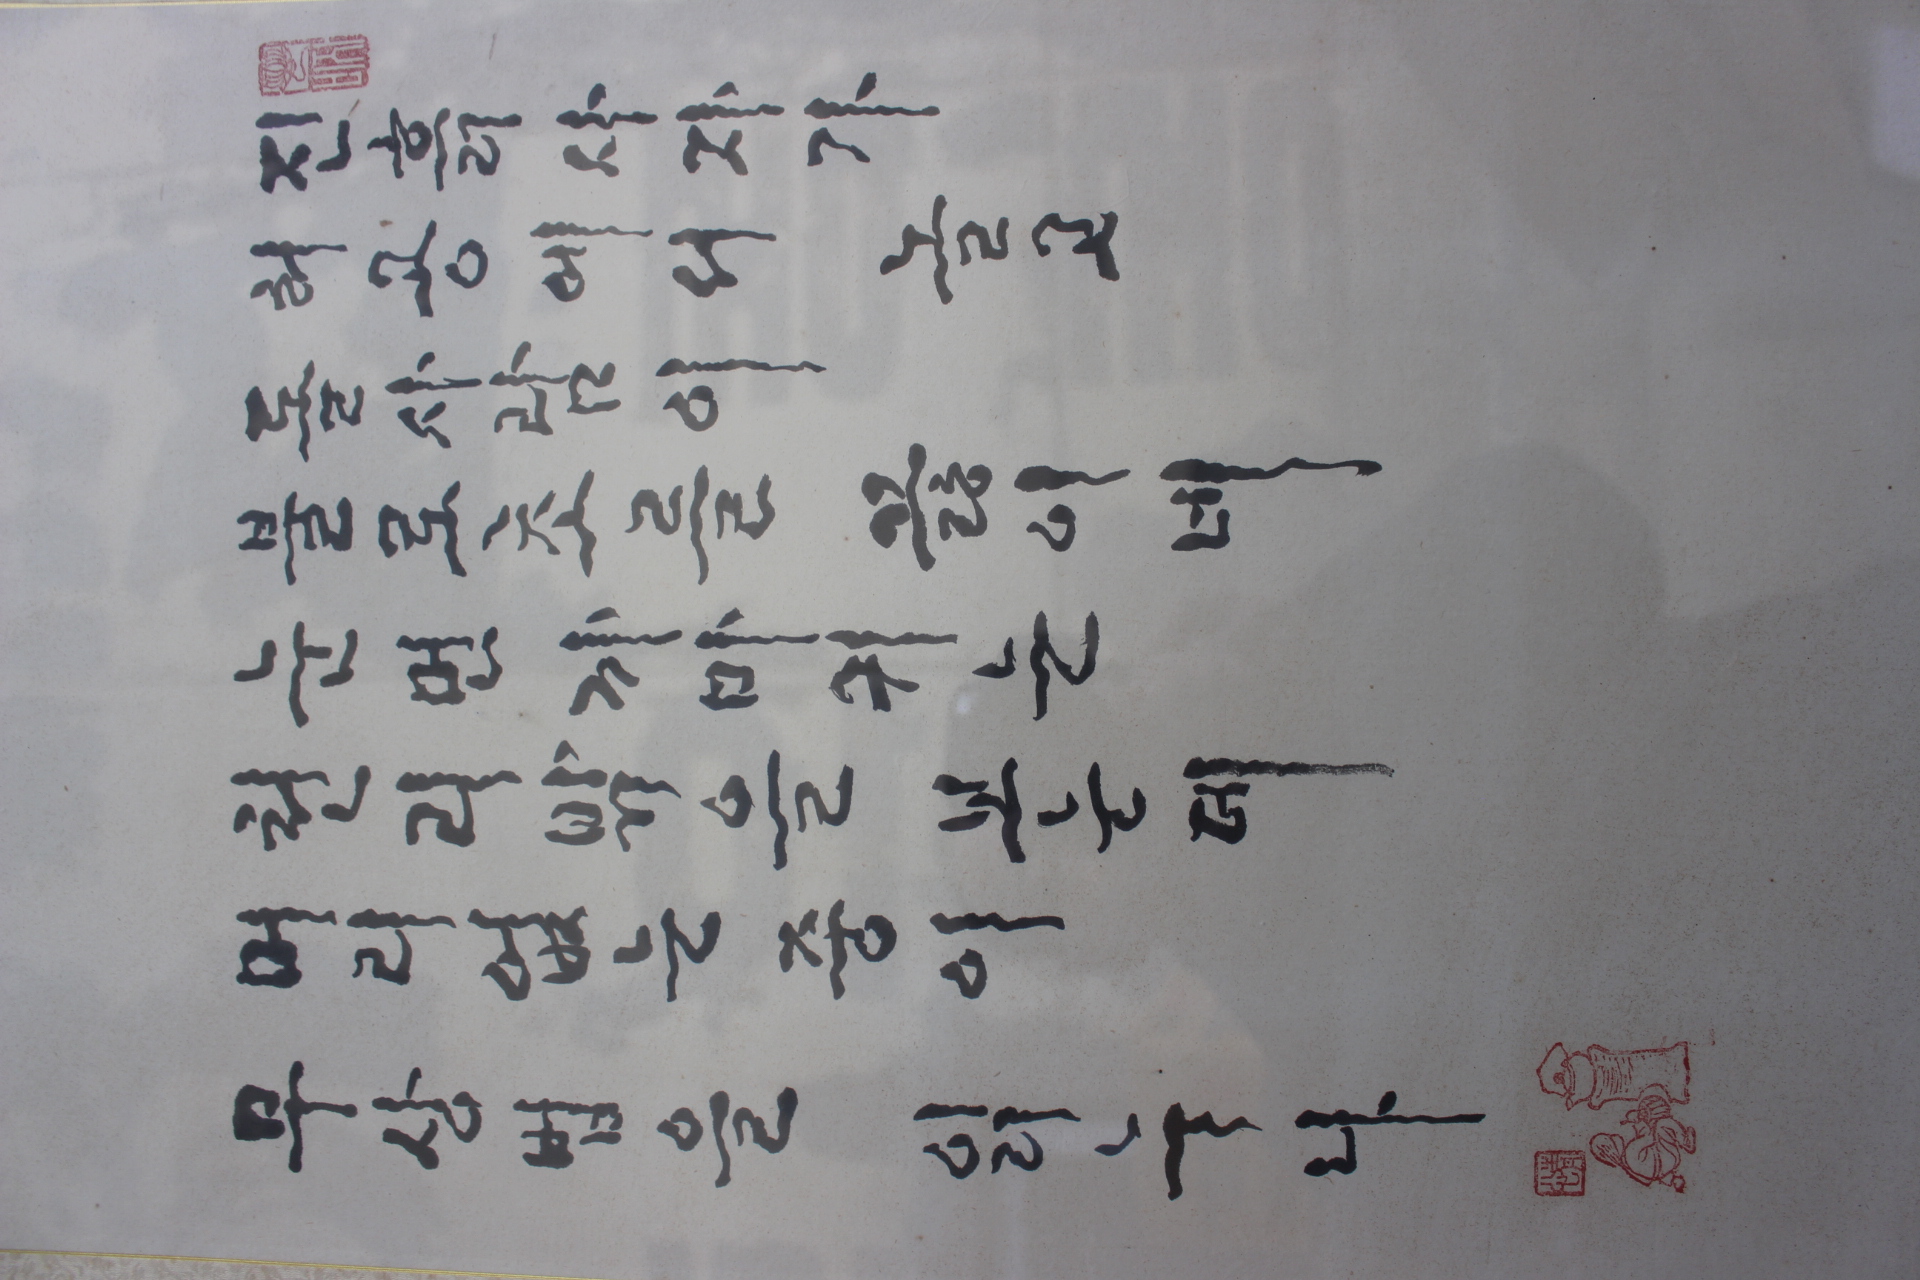 진흙사자가
허공에서 놀고
돌사람이
불로초를 끓이네
눈먼 까마귀는
천리밖을 보는데
머리없는 중이
무상법을 읽누나